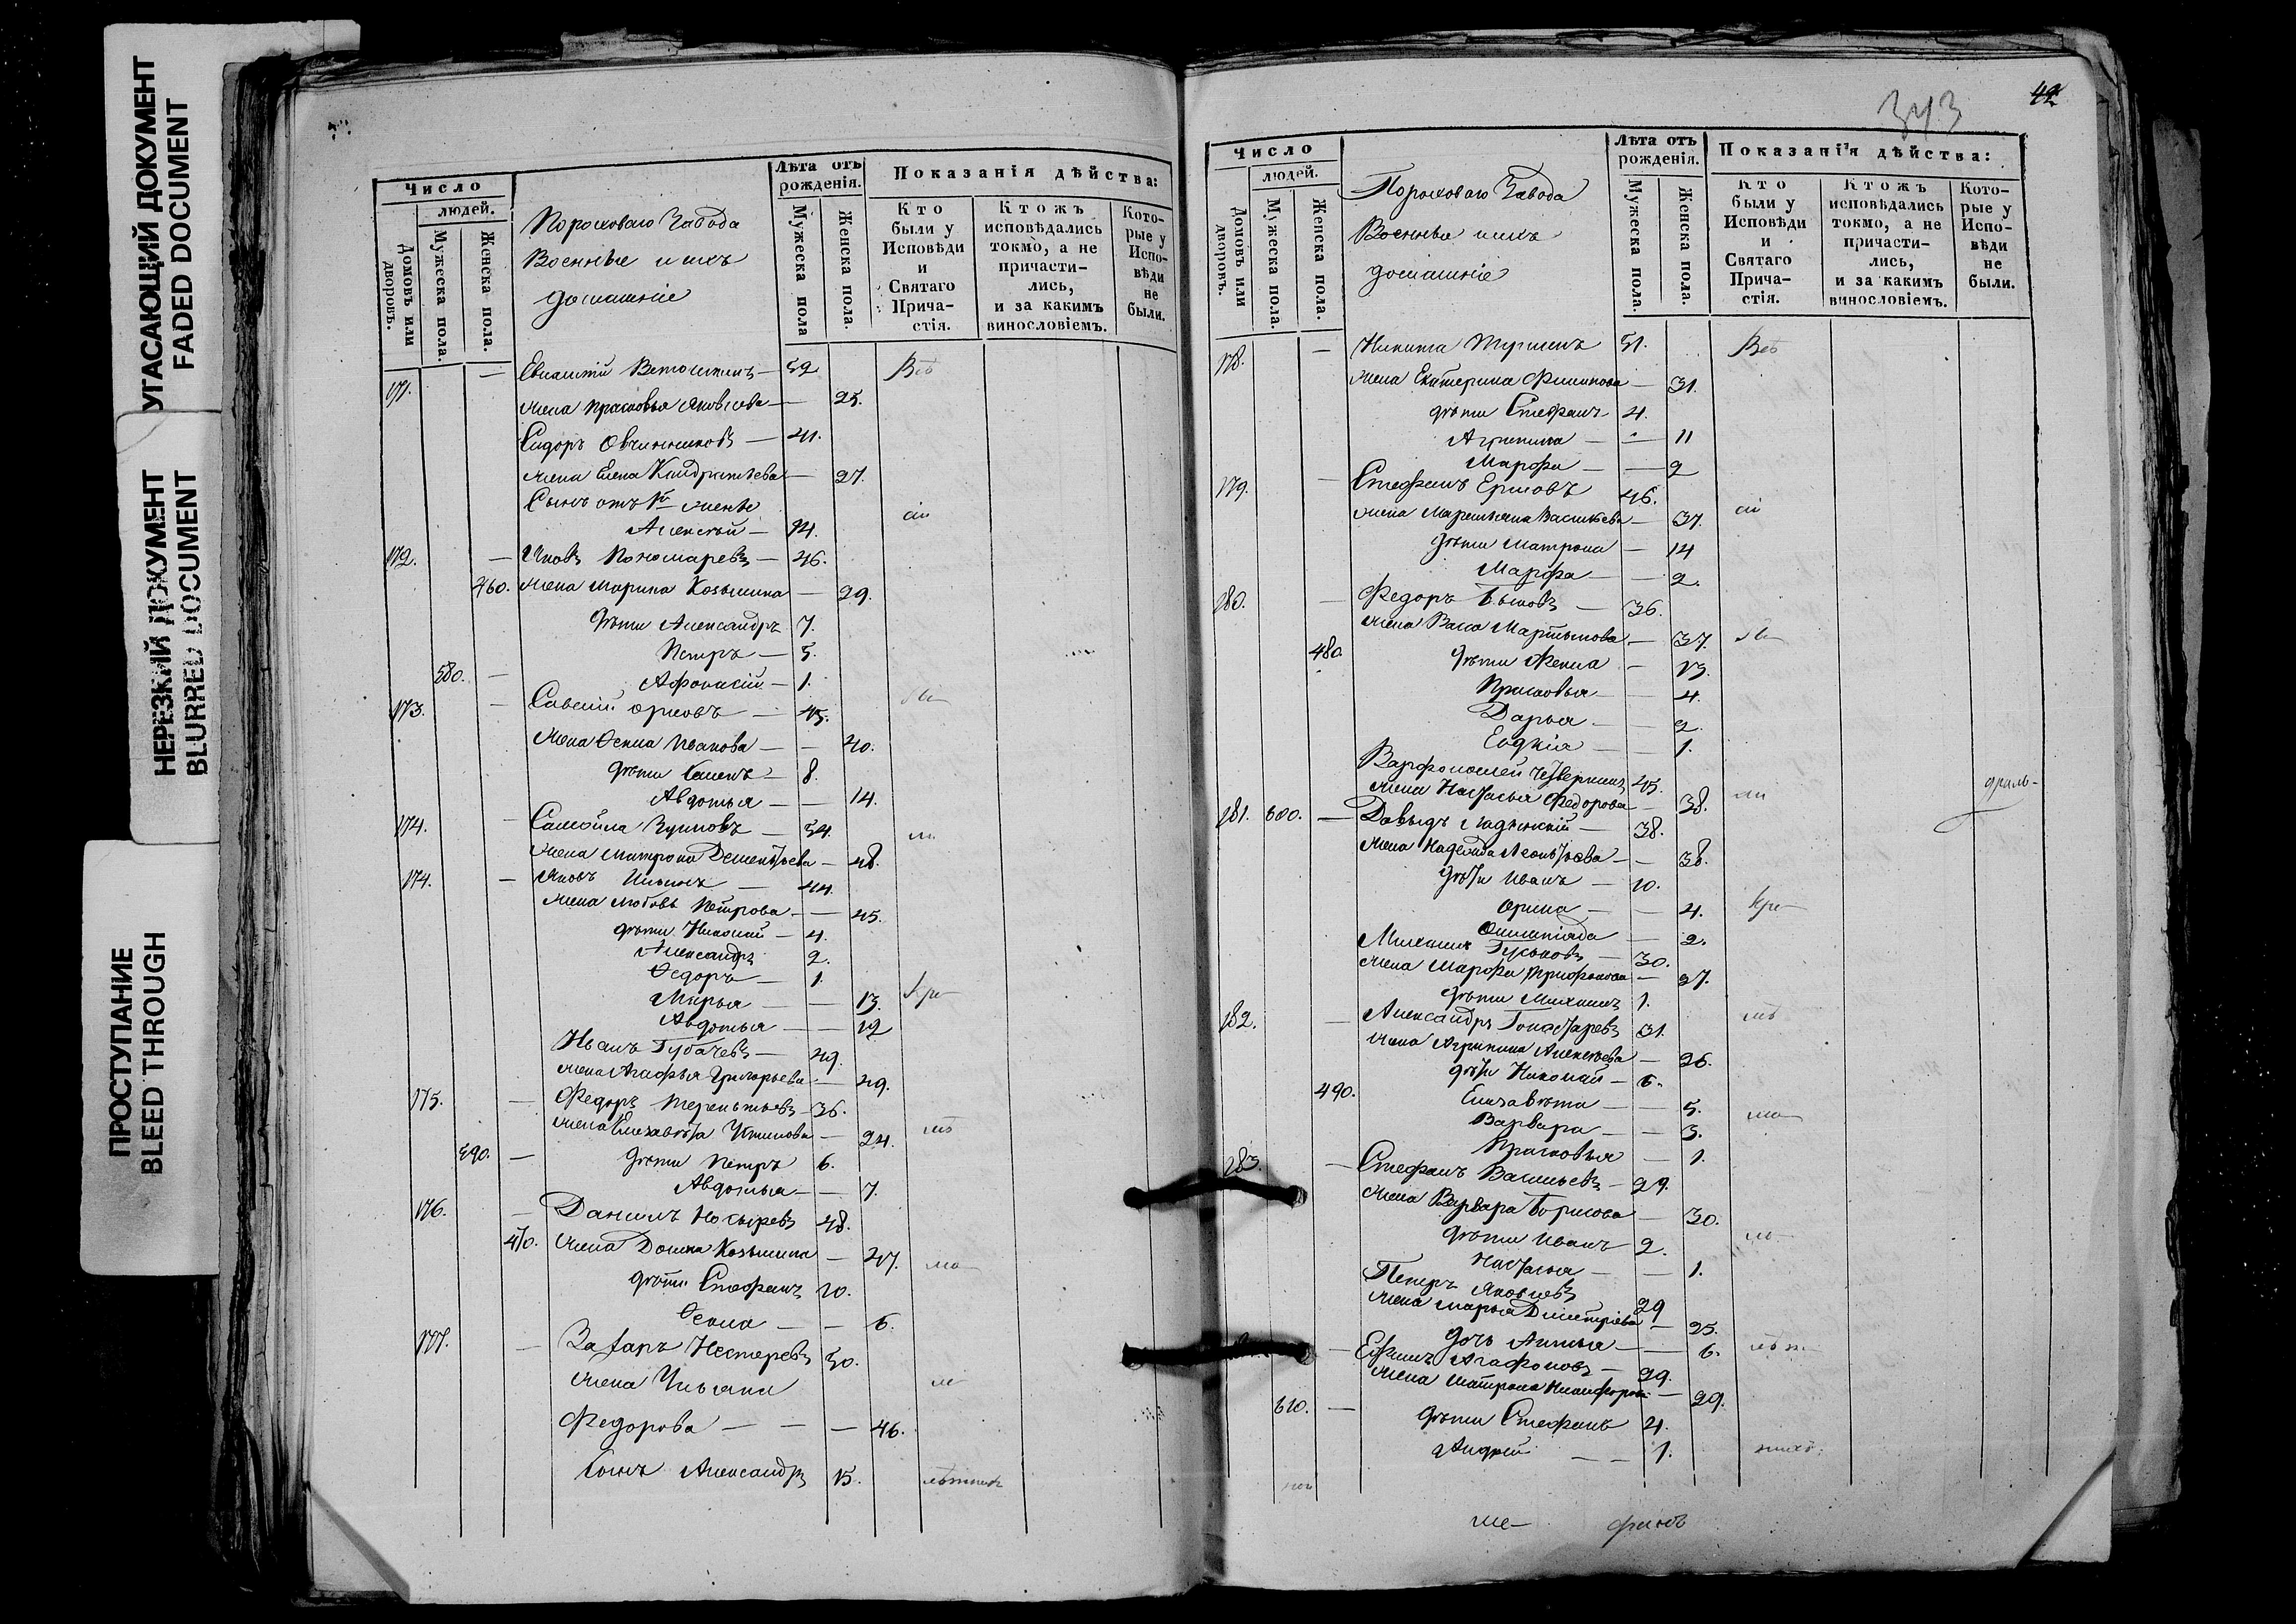 УГАСАЮЩИЙ ДОКУМЕНТ
FADED DOCUMENT
НЕРЕЗКИЙ ДОКУМЕНТ
BLURRED DOCUMENT
ПРОСТУПАНИЕ
BLEED THROUGH
Число
людей.
Домовъ или дворовъ.
Мужеска пола.
Женска пола.
Пороховаго Завода
Военные и ихъ
домашніе
Лѣта отъ
рожденія.
Мужеска пола
Женска пола.
Показанія дѣйства:
Кто
были у
Исповѣди
и
Святаго
Прича-
стія.
Ктожъ
исповѣдались
токмо, а не
причасти-
лись,
и за какимъ
винословіемъ.
Кото-
рые у
Испо-
вѣди
не
были.
171. — Ветошкинъ — 52 Всѣ
жена Прасковья Яковлева — 25.
Сидоръ Овчинниковъ — 41.
жена Елена Кандратьева — 27.
Сынъ отъ 1й жены
Алексѣй — 14.
172. — Яковъ Пономаревъ — 46.
460. жена Марина Козьмина — 29.
дѣти Александръ 7.
Петръ — 5.
580. — Афонасій — 1.
173. — Савелій Орловъ — 45.
жена Ѳекла Иванова — — 40.
дѣти Семенъ — 8.
Авдотья — — 14.
174. — Самойла Зуиковъ — 54.
жена Матрона Дементьева — 48.
174. — Яковъ Ильинъ — 44.
жена Любовь Петрова — — 45.
дѣти Николай — 4.
Александръ 2.
Ѳедоръ — 1.
Марья — — 13.
Авдотья — — 12
Иванъ Губачевъ — 49.
жена Агафья Григорьева — 49.
175. — Федоръ Терентьевъ — 36.
жена Елизавета — 24.
590. — дѣти Петръ 6.
Авдотья — — 7.
176. — Данилъ Носыревъ 48.
470. жена Домна Козьмина — 47.
дѣти Стефанъ 10.
Ѳекла — — 6.
177. — Захаръ Нестеревъ 50.
жена Ульяна
Федорова — — — 46.
Сынъ Александръ 15.
343
42
Число
людей.
Домовъ или дворовъ.
Мужеска пола.
Женска пола.
Пороховаго Завода
Военные и ихъ
домашніе
Лѣта отъ
рожденія.
Мужеска пола.
Женска пола.
Показанія дѣйства:
Кто
были у
Исповѣди
и
Святаго
Прича-
стія.
Ктожъ
исповѣдались
токмо, а не
причасти-
лись,
и за какимъ
винословіемъ.
Кото-
рые у
Испо-
вѣди
не
были.
178. — Никита 51. Всѣ
жена Екатерина Филипова — 31.
дѣти Стефанъ 4.
Агрипина — — 11
Марфа — — 2
179. — Стефанъ Ермовъ 46.
жена Маремьяна Васильева — 37.
дѣти Матрона — 14
Марфа — — 2.
180. — Федоръ Быковъ — 36.
жена Васса Мартынова — 37.
480. дѣти Фекла — 13.
Прасковья — — 4.
Дарья — — 2.
Евдкія — — 1.
Варфоломей Четверкинъ 45.
жена Настасья Федорова — 38.
181. 600. — Давыдъ — 38.
жена Надежда Леонтьева — — 38.
дѣти Иванъ — 10.
Орина — — 4.
Олимпіада — 2.
Михаилъ Гуськовъ — 30.
жена Марфа Трифонова — 27.
дѣти Михаилъ 1.
182. — Александръ Гончаревъ 31.
жена Агрипина Алексѣева — 26.
дѣти Николай — 6.
490. Елизавета — — 5.
Варвара — — 3.
Прасковья — 1.
183. — Стефанъ Васильевъ — 29.
жена Варвара Борисова — 30.
дѣти Иванъ 2.
Настасья — — 1.
Петръ Яковлевъ 29
жена Марья Дмитріева — 25.
дочь Анисья — — 6.
— Ефимъ Агафоновъ — 29.
жена Матрона Никифорова — 29.
610. — дѣти Стефанъ 4.
Андрей — — 1.